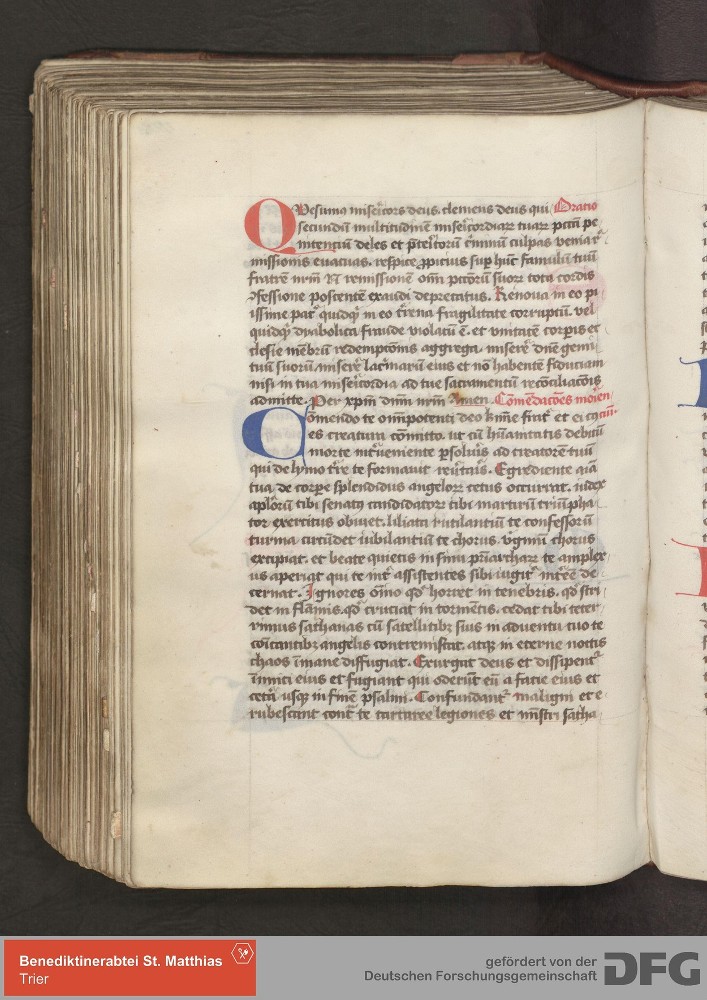 QVesumus misericors deus. clemens deus qui Oratio
secundū multitudinē misericordiarꝫ tuarꝫ pctā pe
nitenciū deles et p̄teritorū crīminū culpas venia re
missionis evacuas. respice ꝓpicius suꝑ hūc famulū tuū
fratrē nrm N remissionē om̄ pctōrū suorꝫ tota cordis
ꝯfessione poscentē exaudi deprecatus. Renova in eo pi
issime pat̉ quidqͥd in eo t̉rena fragilitate corruptū. vel
quidqͥd dyabolica fraude violatū ē. et unitatē corporis ec
clesie mēbrū redemptōnis aggrega. misere̓ dn̄e gemi
tuū suorū misere̓ lacrimarū eius et nō habentē fiduciam
nisi in tua misericordia ad tue sacramentū recōciliacōis
admitte. Per xp̄m dn̄m nrm Amen. Cōmēdacōes
Cōmendo te omīpotenti deo kme frat̉ et ei cuius
es creatura cōmitto. ut cū hūanitatis debitū
morte int̉veniente ꝑsolveris ad creatorē tuū
qui de lymo t̉re te formavit rev̉taris. Egrediente aīa
tua de corꝑe splendidus angelorꝫ cetus occurrat. iudex
apl̄orū tibi senatꝰ candidatorꝫ tibi martirū triūpha
tor exercitus obviet. liliata rutilantiū te confessorū
turma circūdet iubilantiū te chorus v̓ginū chorus
excipiat. et beate quietis in sinu pr̄iarcharꝫ te amplex
us aperiat qui te int̉ assistentes sibi iugit̉ int̉ēē de
cernat. Ignores oīno qd̓ horret in tenebris. qd̓ stri
det in flāmis. qd̓ cruciat in tormētis. cedat tibi teter
rimus sathanas cū satellitibꝫ suis in adventu tuo te
comitantibꝫ angelis contremiscat. atqꝫ in eterne noctis
chaos īmane diffugiat. Exurgat deus et dissipent̉
inīmici eius et fugiant qui oderūt eū a facie eius et
cetā usqꝫ in finē psalmi. Confundant̉ maligni et e
rubescant cont̉ te tartaree legiones et mīstri satha
Benediktinerabtei St. Matthias
Trier
gefördert von der
Deutschen Forschungsgemeinschaft DFG